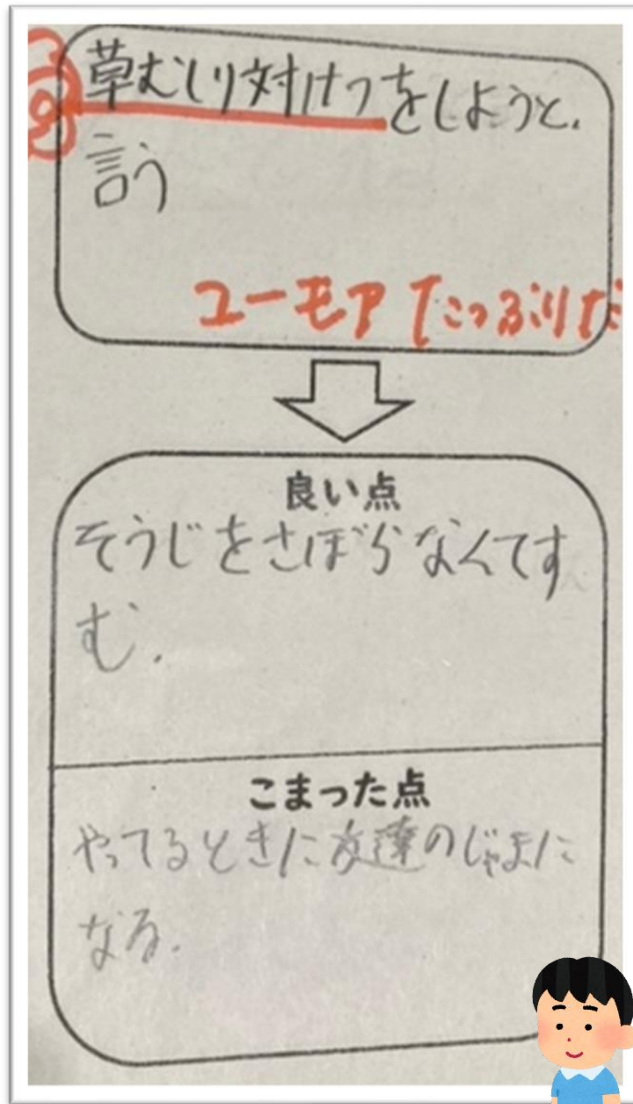 草むしり対けつをしようと.
言う
ユーモアたっぷりだ
良い点
そうじをさぼらなくてす
む.
こまった点
やってるときに友達のじゃまに
なる.